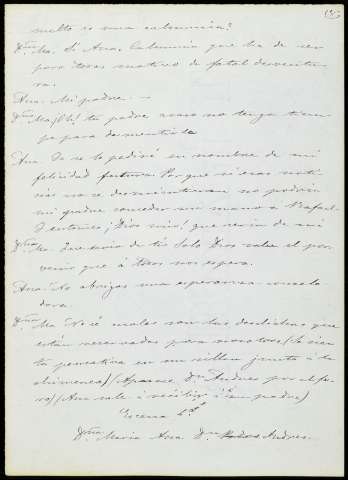 (5)
multo es una calumnia?
Dña Ma. Si Ana. Calumnia que ha de ser
para todos motivo de fatal desventu-
ra.
Ana. Mi padre. —
Dña Ma. ¡Oh! tu padre acaso no tenga tiem-
po para desmentirla
Ana. Yo se lo pediré en nombre de mi
felicidad futura. Porque si esas noti-
cias no se desmintieran no podria
mi padre conceder mi mano a Rafael
I entonces ¡Dios mio! que seria de mi
Dña Ma. Que seria de ti? Solo Dios sabe el por-
venir que á todos nos espera.
Ana. No abrigas una esperanza consola-
dora.
Dña Ma. No sé cuales son las desdichas que
están reservadas para nosotros (Se sien-
ta pensativa en un sillon junto á la
chimenea) (Aparece Dn Andres por el fo-
ro) (Ana sale á recibir á su padre)
Escena
Dña Maria Ana Dn Andres